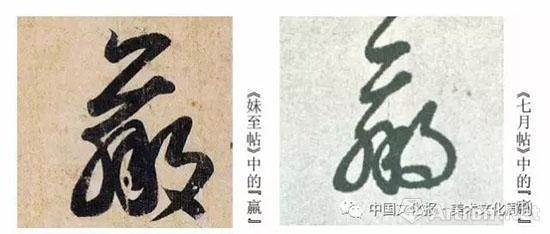 《妹至帖》中的『羸』
《七月帖》中的『羸』
中国文化报·美术文化周刊